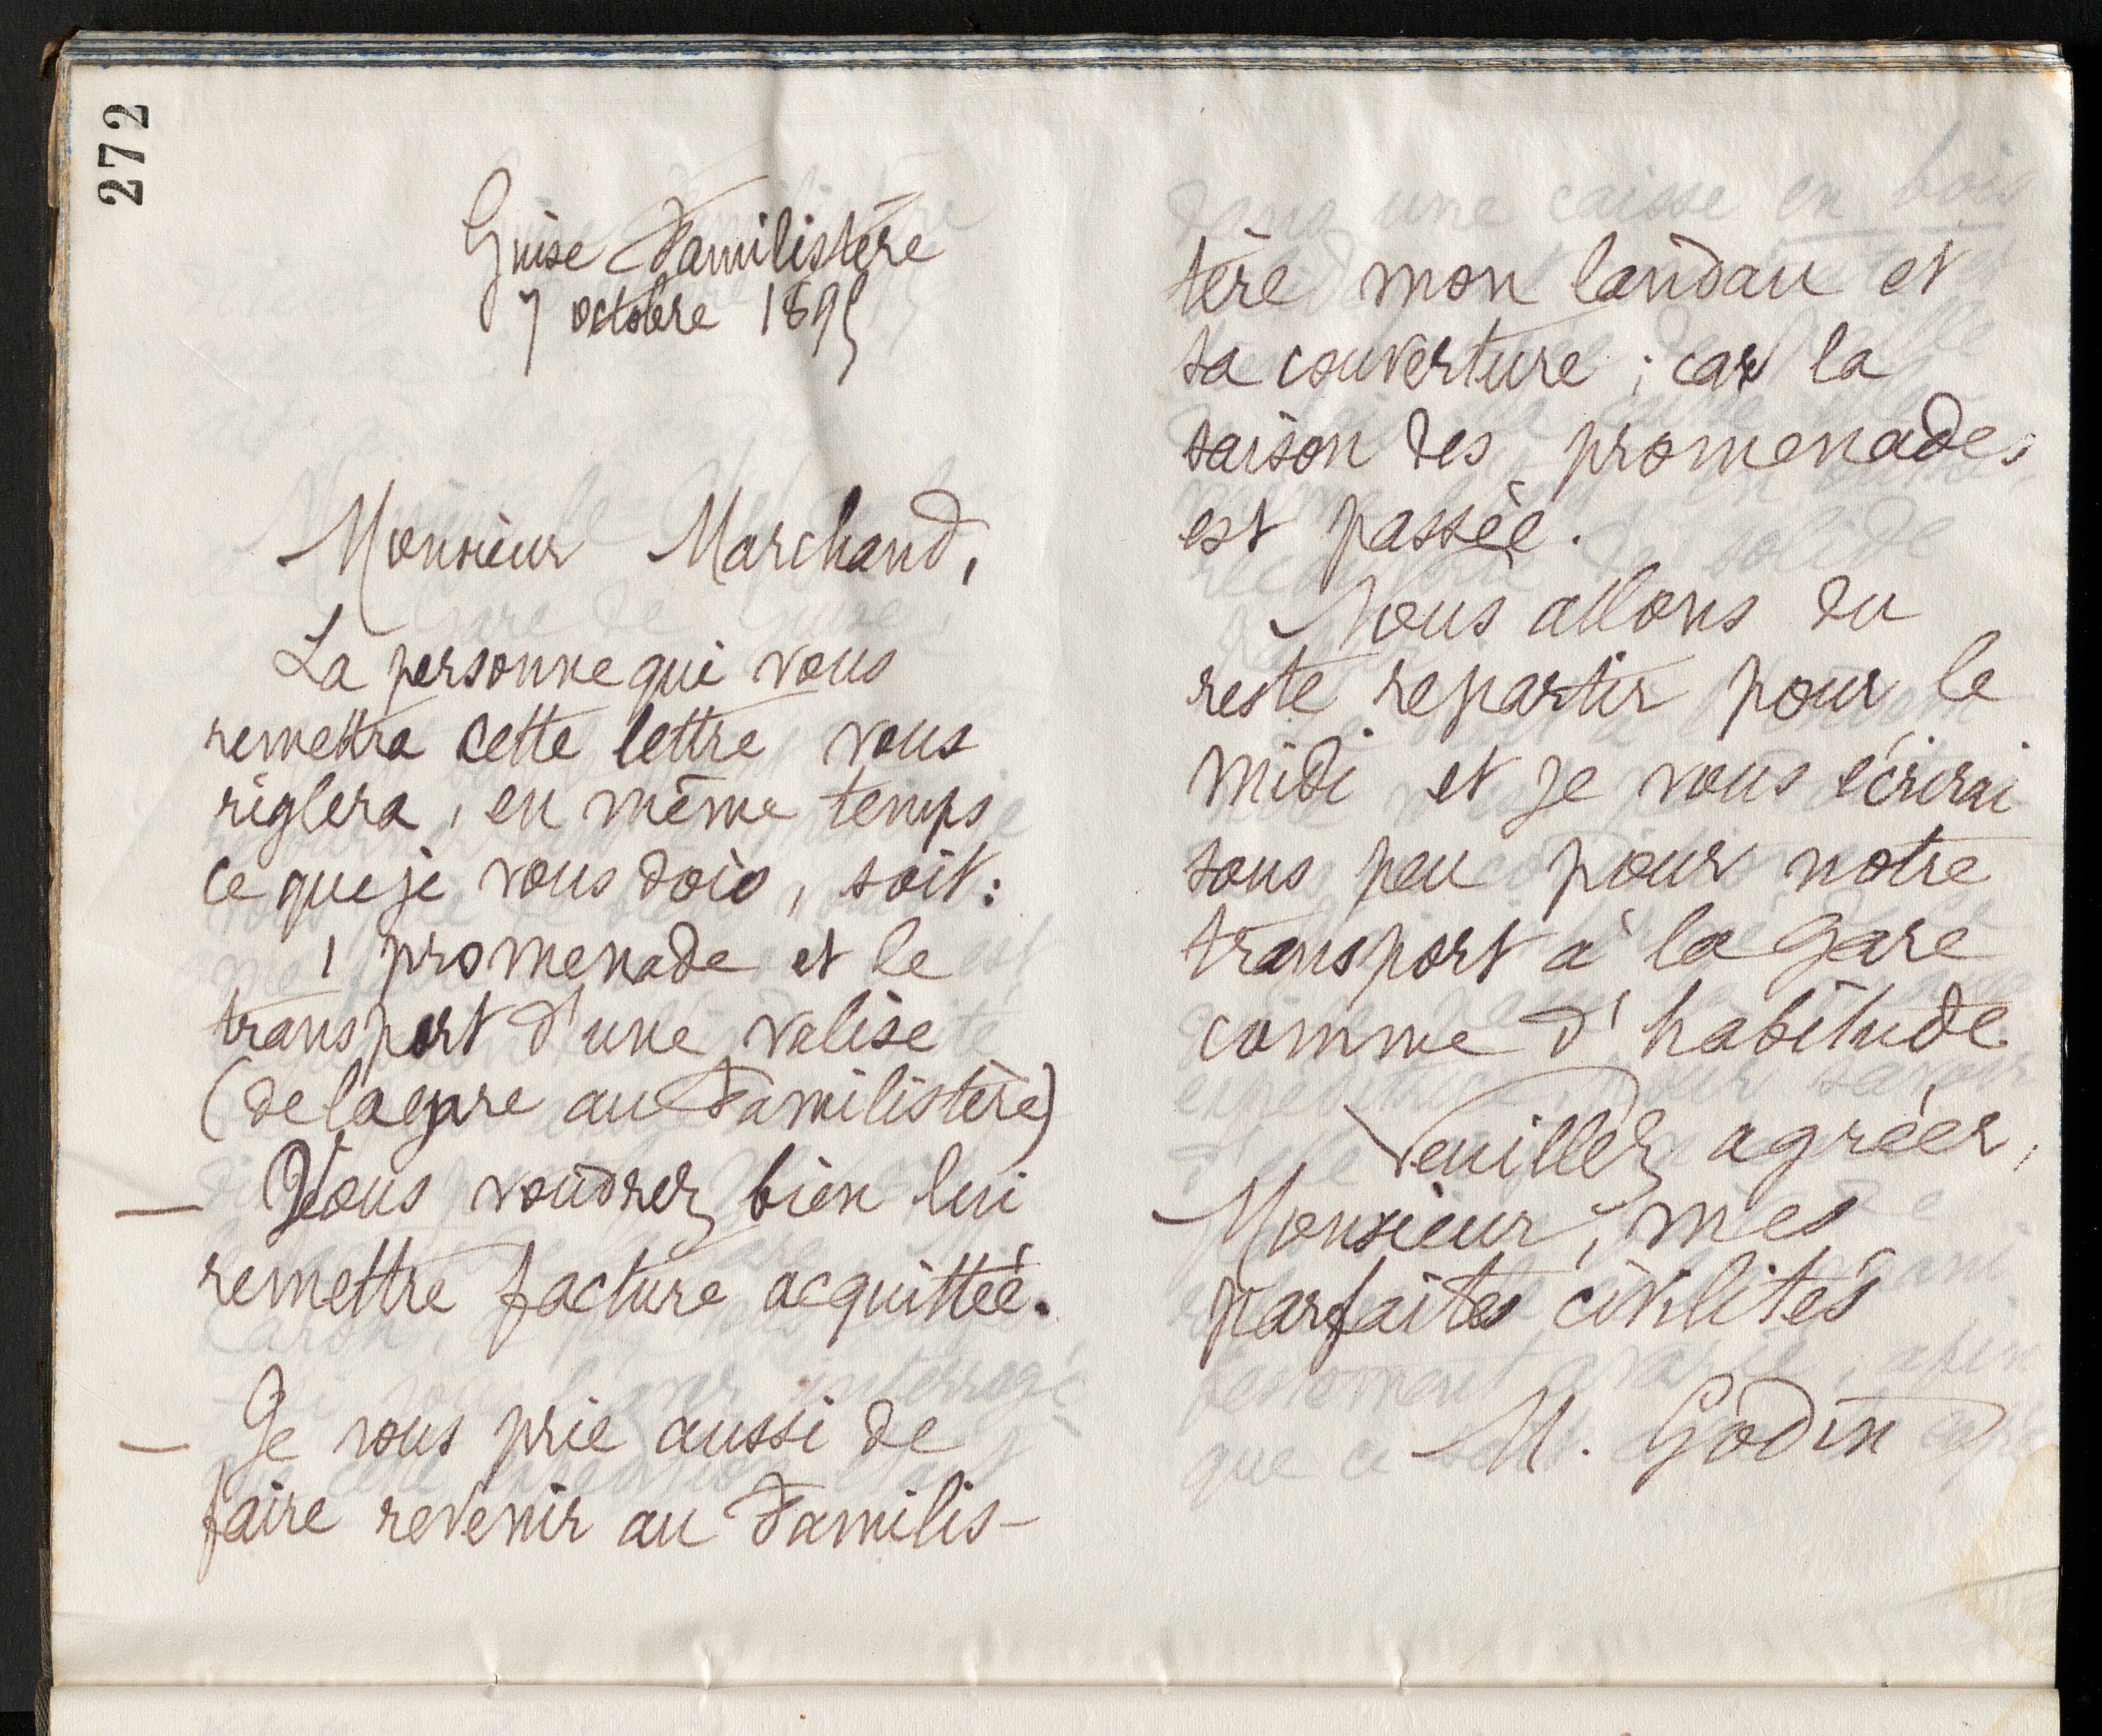 272
Guise Familistère
7 octobre 1895
Monsieur Marchand,
La personne qui vous
remettra cette lettre vous
règlera, en même temps
ce que je vous dois, soit :
1 promenade et le
transport d'une valise
(de la gare au Familistère)
— Vous voudrez bien lui
remettre facture acquittée.
— Je vous prie aussi de
faire revenir au Familis-
tère mon landau et
sa couverture ; car la
saison des promenades
est passée.
Nous allons du
reste repartir pour le
midi et je vous écrirai
sous peu pour notre
transport à la gare
comme d'habitude.
Veuillez agréer,
Monsieur, mes
parfaites civilités
M. Godin